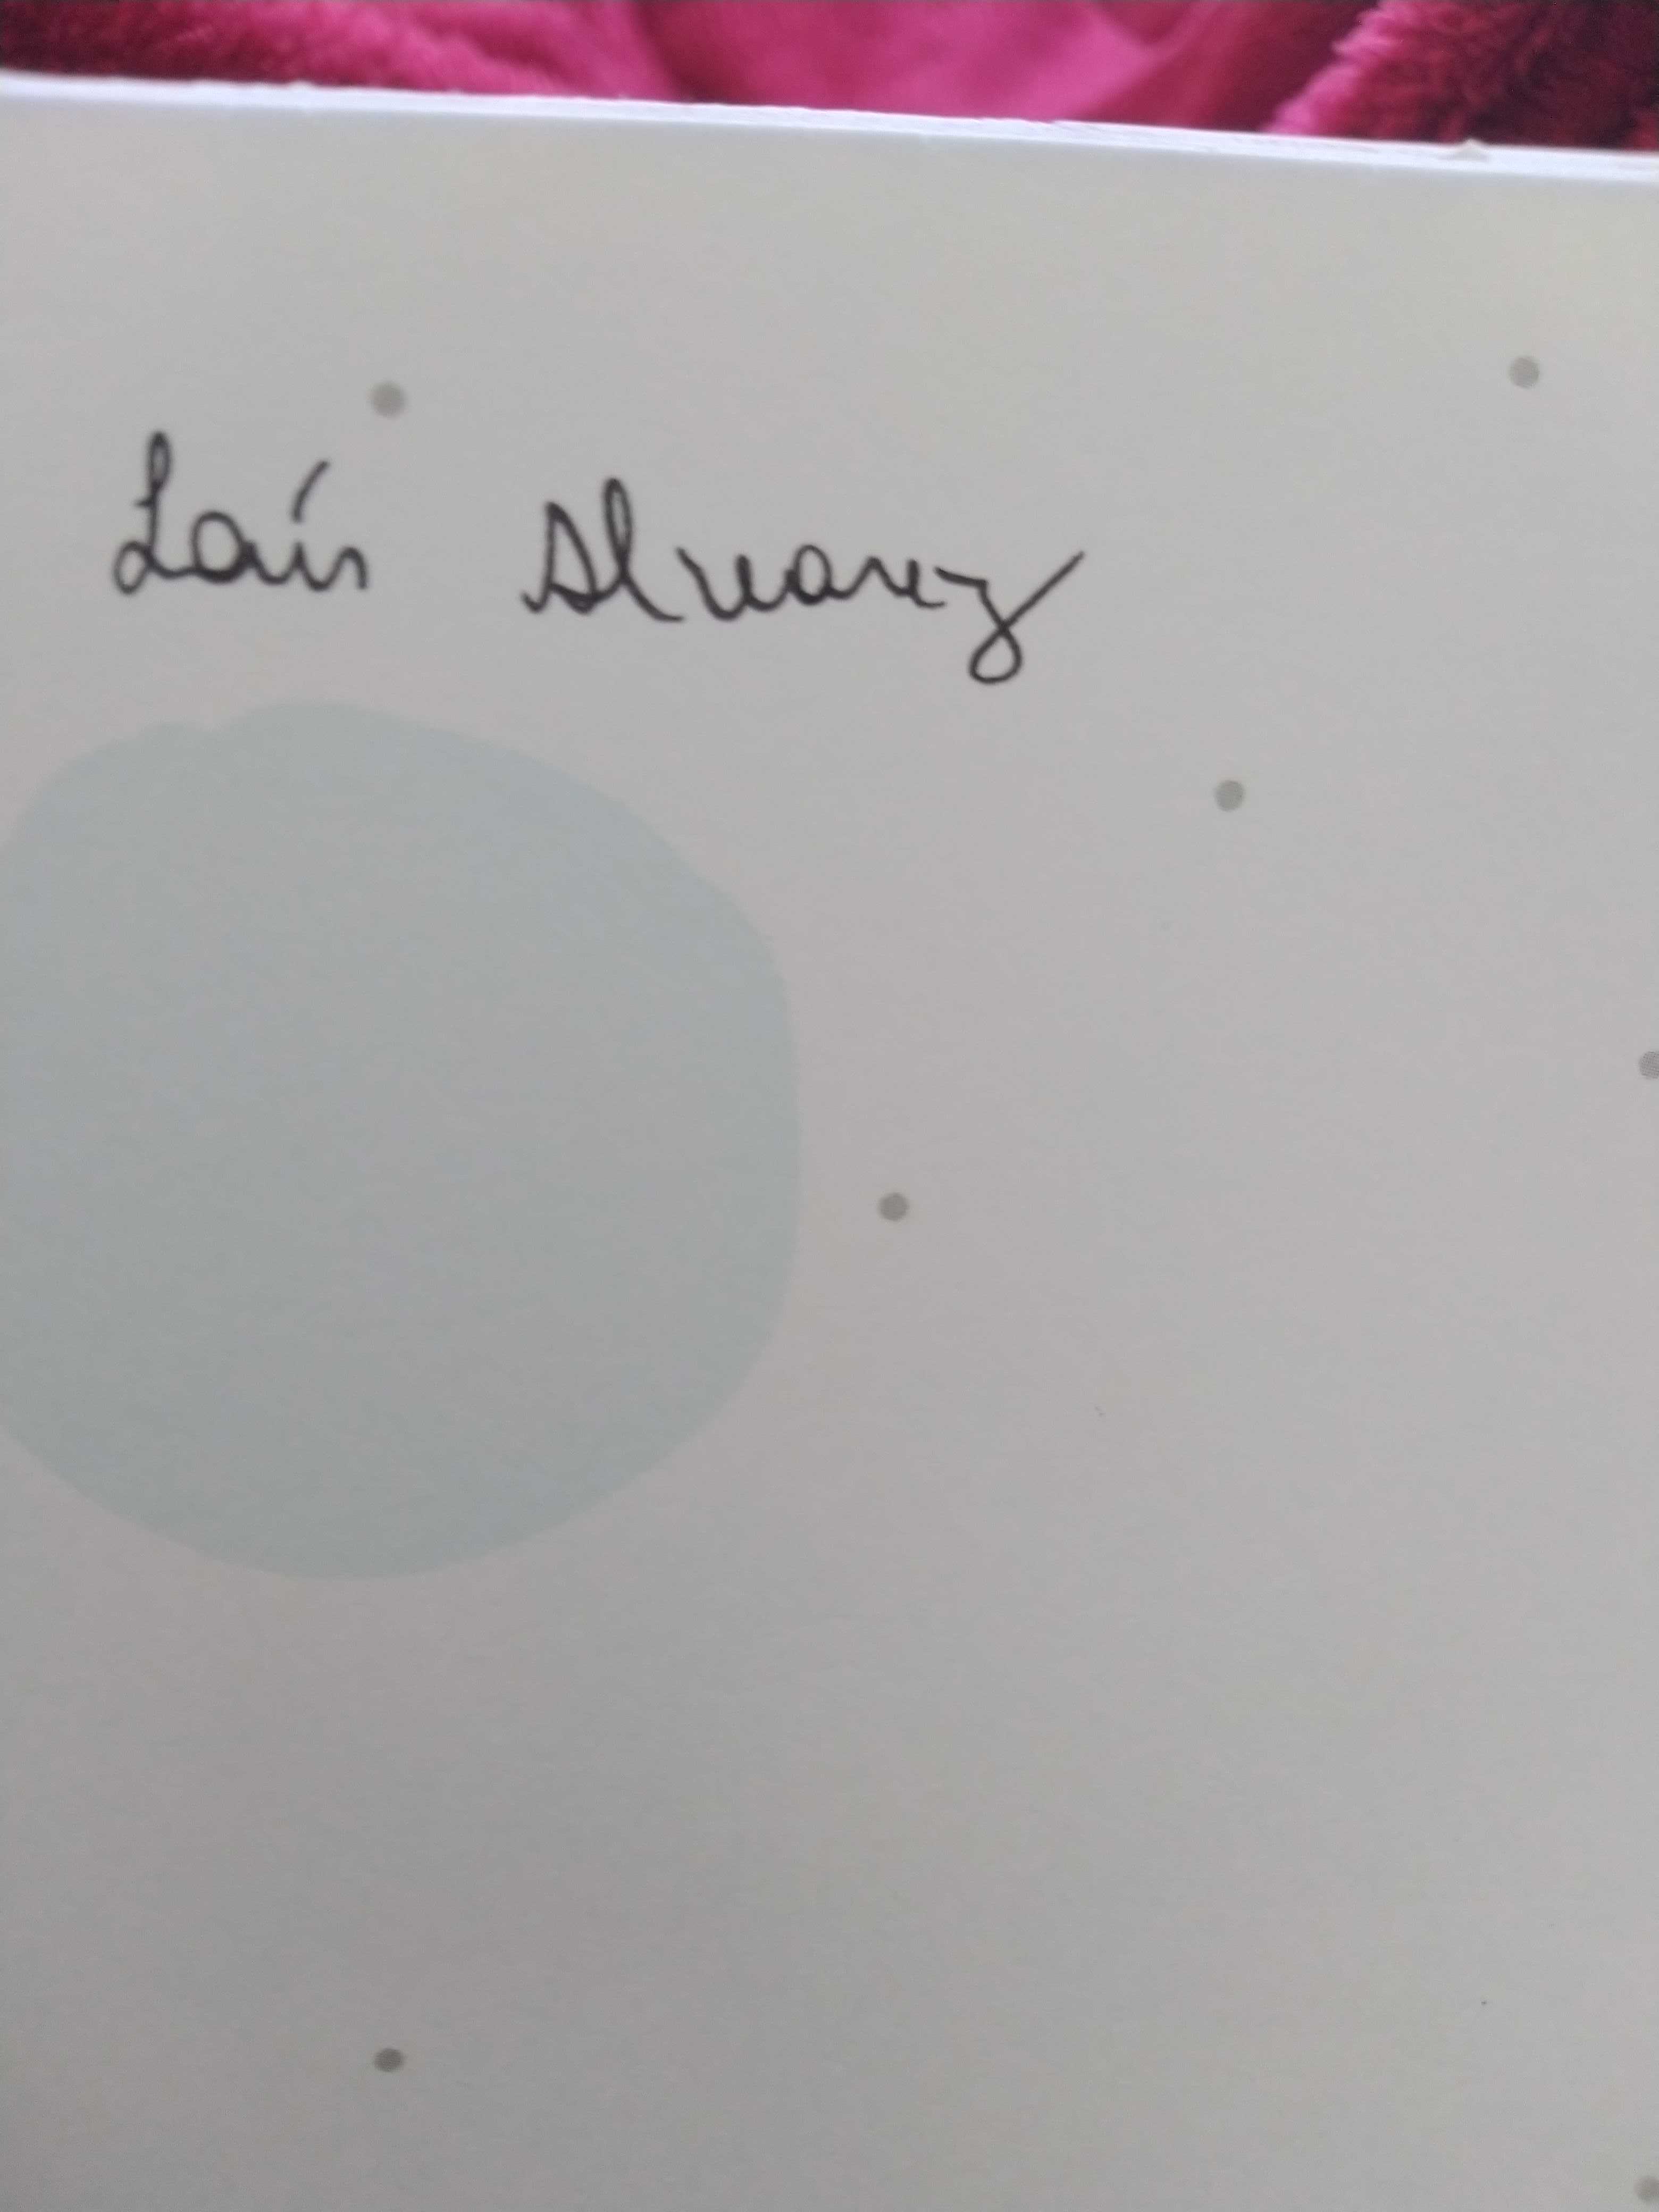 Laís Alvarez